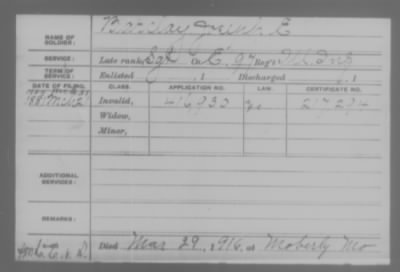 NAME OF SOLDIER: Barclay
SERVICE: Late rank, Sgt Co. E, 97 Reg't Ill. Inf
TERM OF SERVICE: Enlisted , 1 Discharged , 1
DATE OF FILING. CLASS. APPLICATION NO. LAW. CERTIFICATE NO.
Invalid, 416,932 217,294
Widow,
Minor,
ADDITIONAL SERVICES:
REMARKS:
Died Mar 29, 1916, at Moberly Mo